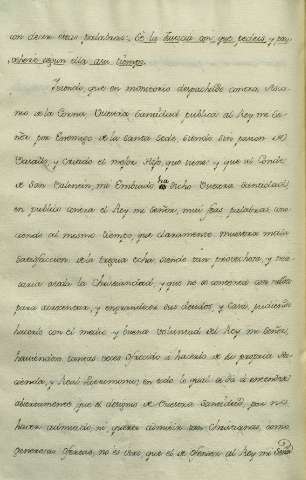 con decir estas palabras: Es la fuerza con que pedeis y no
segun dia asi tiempo.
Segundo, que en monitorio despachado contra Asca
nio de la Corna, Vuestra Santidad publica al Rey mi Se
ñor por Enemigo de la Santa Sede, siendo sin pasion de
Vasallo, y criado el mejor Hijo, que tiene: y que al Conde
de San Valentin, mi Embiado ha dicho Vuestra Santidad,
en publico contra el Rey mi Señor, mui feas palabras, di
ciendo al mismo tiempo, que claramente muestra mala
satisfaccion de la tregua echa siendo tan provechosa, y nece
saria a toda la Christiandad, y que no se contenta con
para acrecentar, y engrandecer sus deudos, y Casa, pudiendo
hacerlo con el medio y buena voluntad del Rey mi Señor,
haviendose tantas veces ofrecido a hacerlo de su propria Ha
cienda, y Real Patrimonio; en todo lo qual se da a entender
abiertamente que el designio de Vuestra Santidad, por no
haver admitido, ni querer admitir tan Christianas, como
generosas ofertas, no es otro, que el de ofender al Rey mi Señor